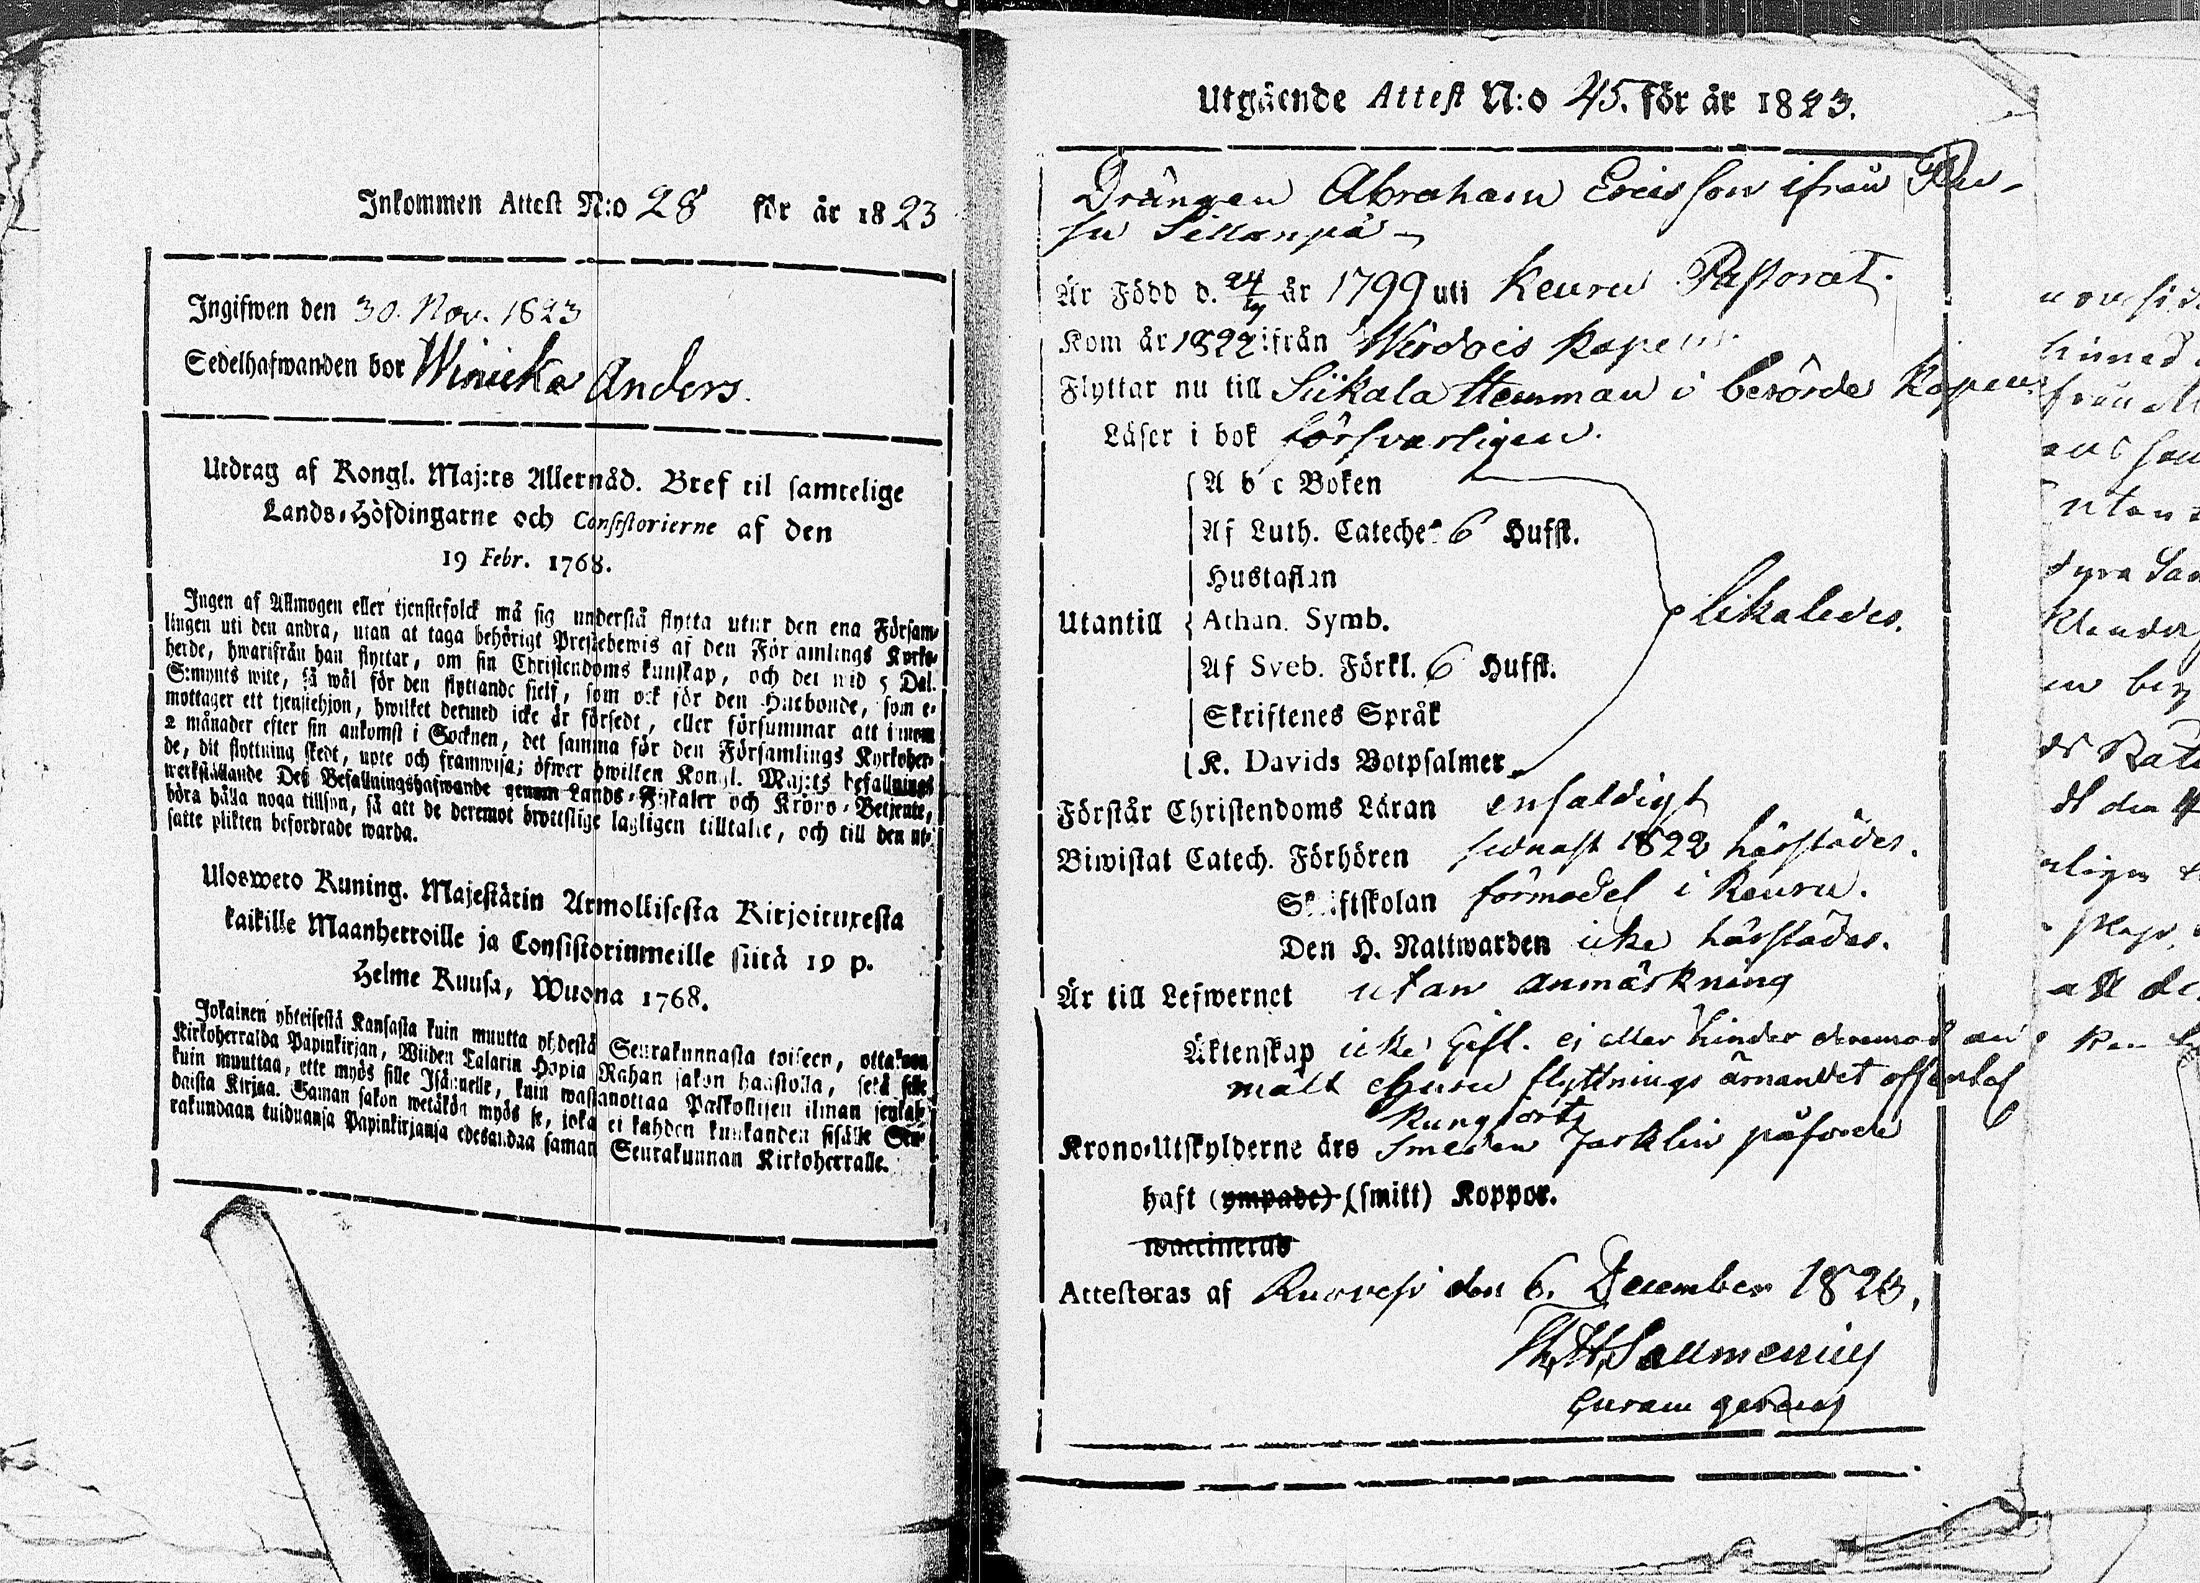 Inkommen Attest N:o 28 för år 1823
Ingifwen den 30. Nov. 1823
Sedelhafwanden bor Winicka Anders.
Utdrag af Kongl. Maj:ts Allernåd. Bref til samtelige
Lands-Höfdingarne och Consistorierne af den
19 Febr. 1768.
Ingen af Allmogen eller tjenstefolck må sig understå flytta utur den ena Försam-
lingen uti den andra, utan at taga behörigt Prestebewis af den Församlings Kyrko-
herde, hwarifrån han flyttar, om sin Christendoms kunskap, och det wid 5 Dal.
S:mynts wite, så wäl för den flyttande sjelf, som ock för den Husbonde, som e-
mottager ett tjenstehjon, hwilket dermed icke är försedt, eller försummar att innom
2 månader efter sin ankomst i Socknen, det samma för den Församlings Kyrkoher-
de, dit flyttning skedt, upte och framwisa; öfwer hwilken Kongl. Maj:ts befallnings
werkställande Dess Befallningshafwande genom Lands-Fiskaler och Krono-Betjente,
böra hålla noga tillsyn, så att de deremot brottslige lagligen tilltalte, och till den ut-
satte plikten befordrade warda.
Ulosweto Kuning. Majestätin Armollisesta Kirjoituxesta
kaikille Maanherroille ja Consistoriumeille siitä 19 p.
Helme Kuusa, Wuona 1768.
Jokainen yhteisestä Kansasta kuin muutta yhdestä Seurakunnasta toiseen, ottakoon
Kirkoherralda Papinkirjan, Wiiden Talarin Hopia Rahan sakon haastolla, sekä sille
kuin muuttaa, ette myös sille Isännelle, kuin wastanottaa Palkollisen ilman senkal-
daista Kirjaa. Saman sakon wetäkön myös se, joka ei kahden kuukanden sisälle Seu-
rakundaan tulduansa Papinkirjansa edesandaa saman Seurakunnan Kirkoherralle.
Utgående Attest N:o 45. för år 1823.
Drängen Abraham Ericsson ifrån
Sillanpä
Är Född d. 24 år 1799 uti Keuru Pastorat.
Kom år 1822 ifrån Wirdois Kapell
Flyttar nu till Siikala Hemman i berörde Kapell
Läser i bok försvarligen.
A b c Boken
Af Luth. Cateches 6 Huffst.
Hustaflan
Utantill Athan. Symb. likaledes.
Af Sveb. Förkl. 6 Huffst.
Skriftenes Språk
K. Davids Botpsalmer
Förstår Christendoms Läran enfaldigt
Biwistat Catech. Förhören sednast 1822 härstädes.
Skriftskolan förmodel i Keuru.
Den H. Nattwarden icke härstädes.
Är till Lefwernet utan anmärkning
Äktenskap icke Gift. ej eller hinder deremot an
mält ehuru flyttnings ärnandet offentel
Kungjorts
Krono-Utskylderne äro Smeden påförde
haft (ympade) (smitt) Koppor.
waccinerad
Attesteras af Ruovesi den 6. December 1823.